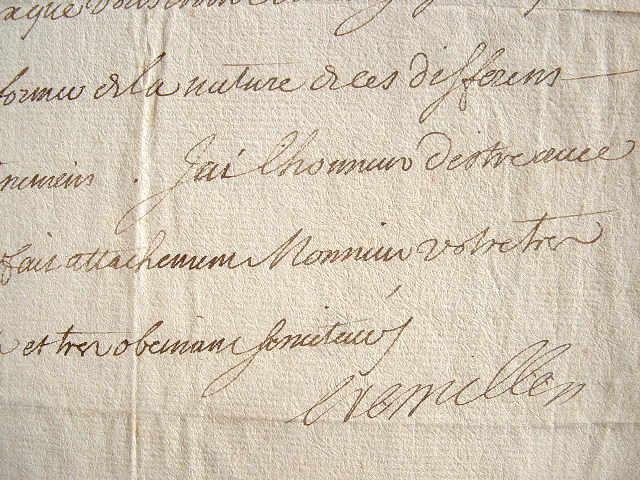 aque vous
former de la nature de ces differens
nemens . J'ai l'honneur d'estre avec
fait attachement Monsieur votre tres
et tres obeissant serviteur
Cremillen